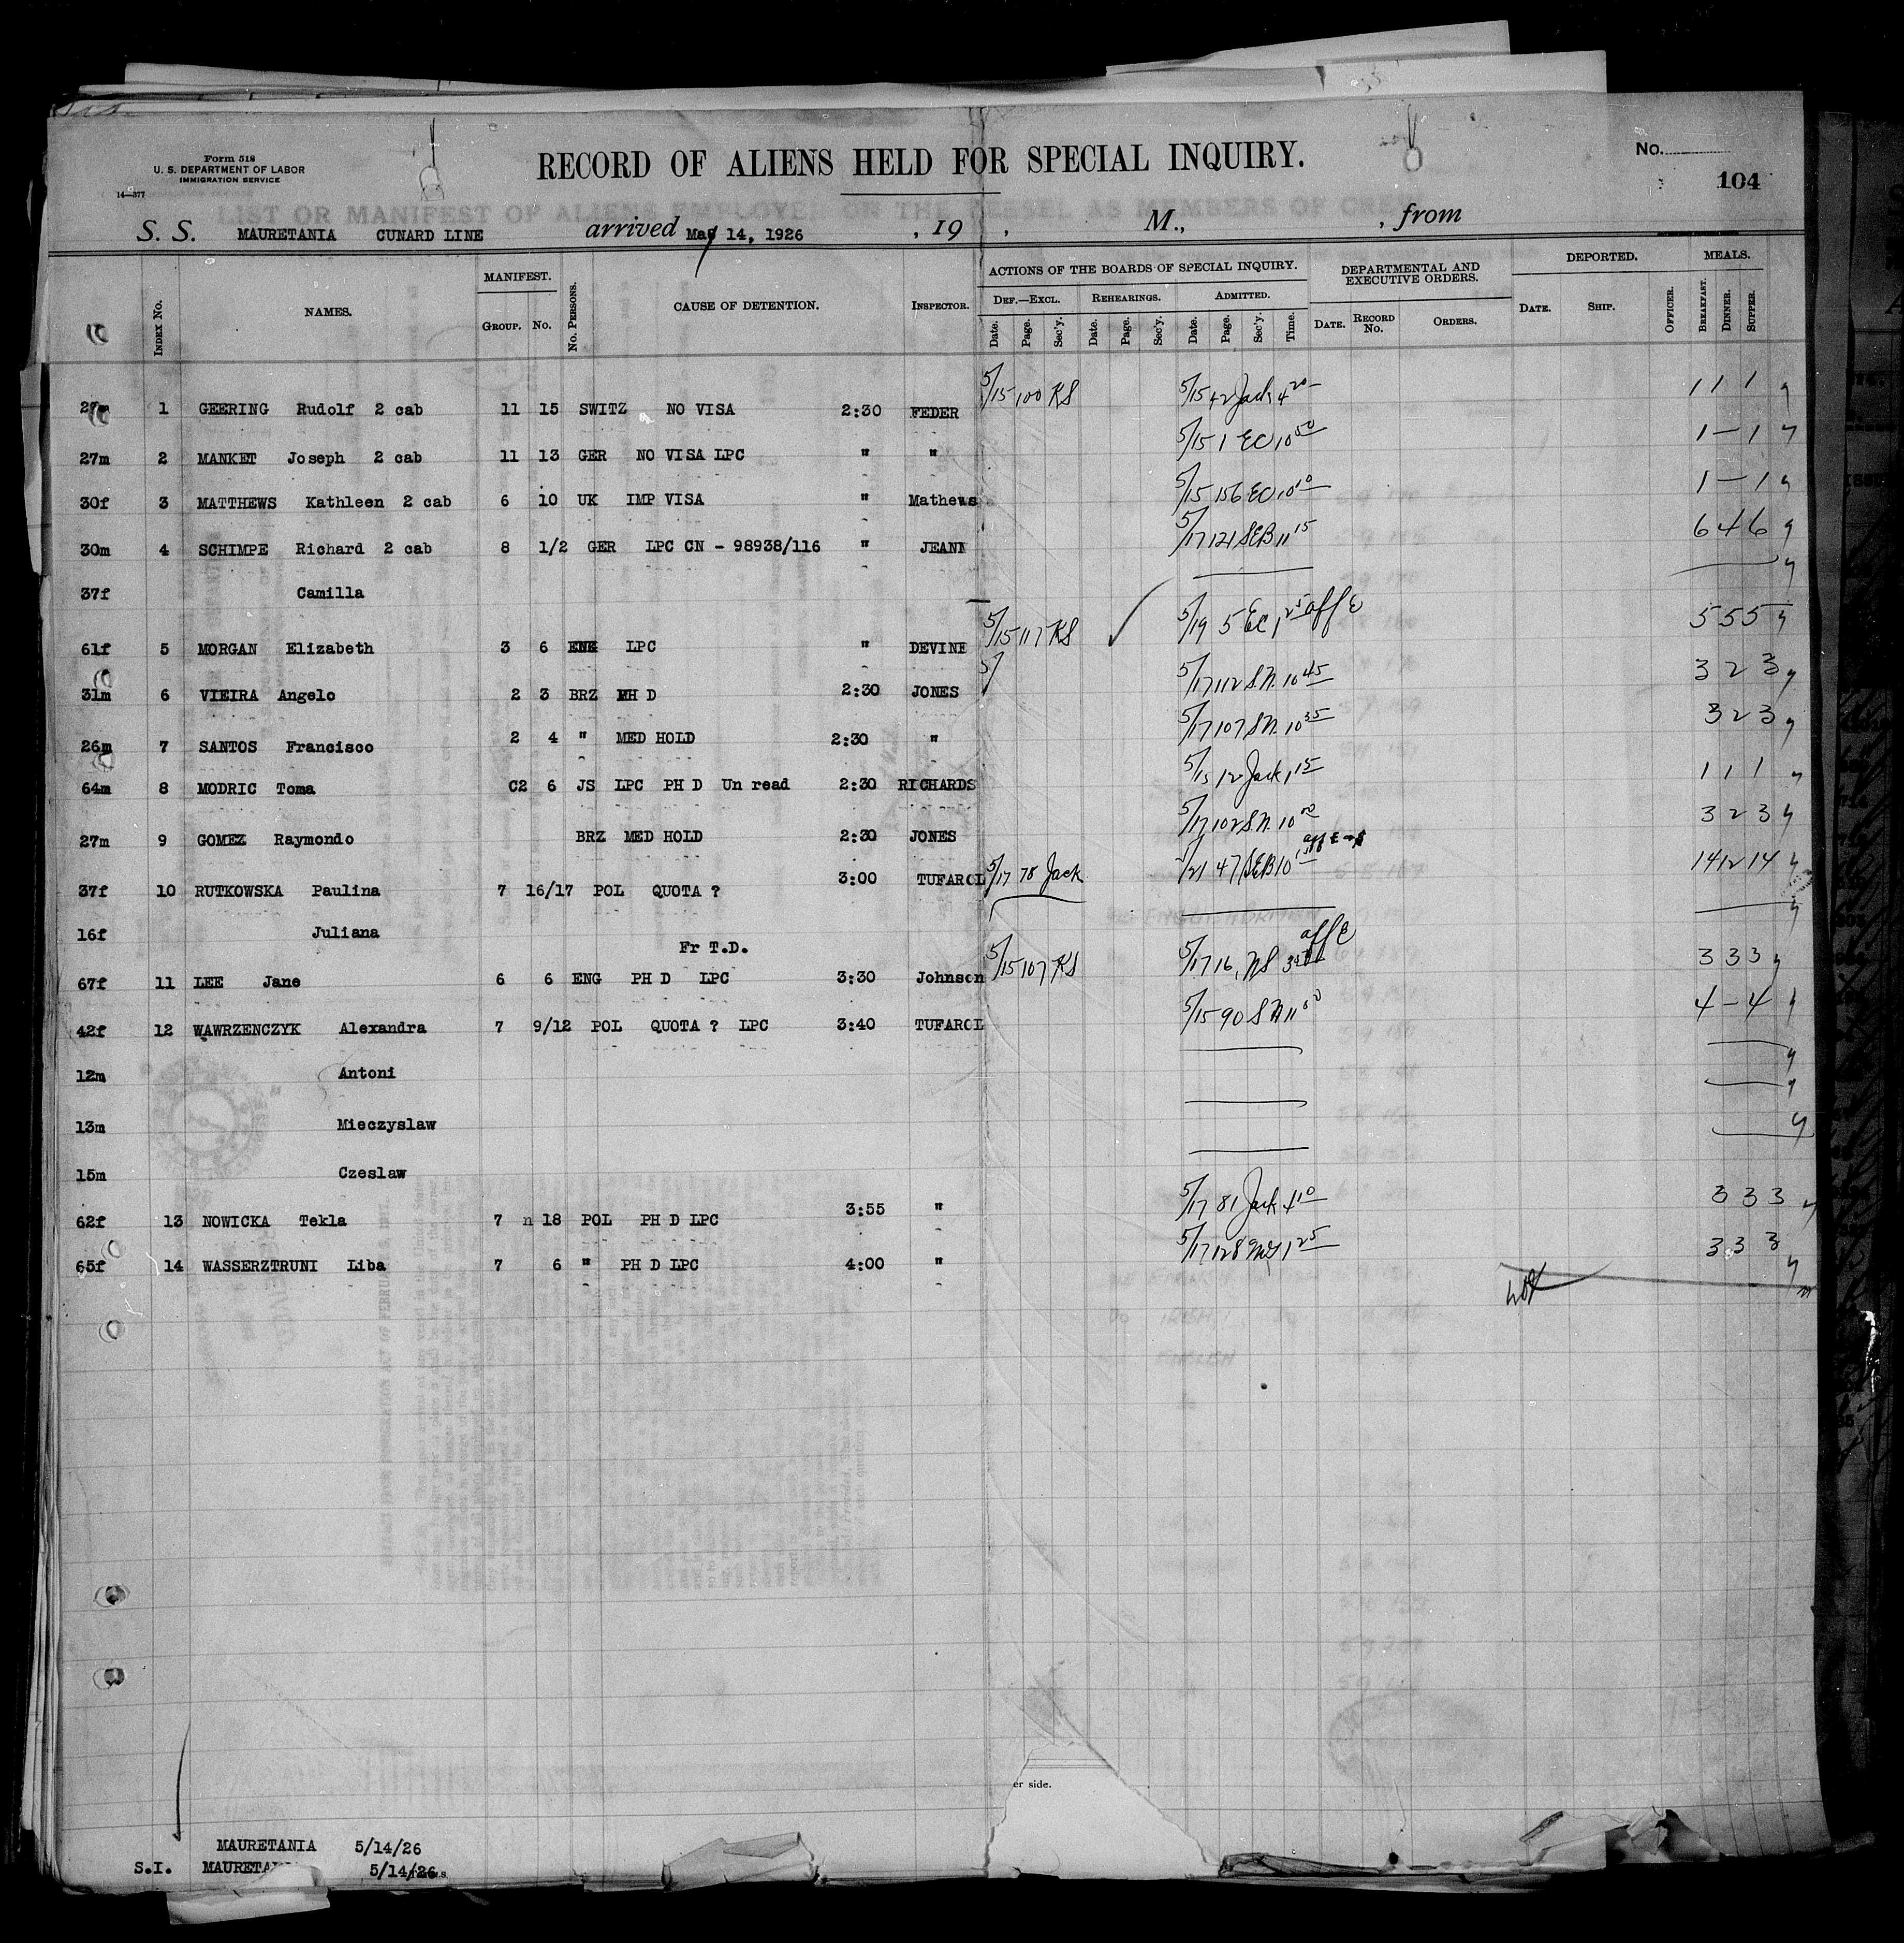 Form 518
U. S. DEPARTMENT OF LABOR
IMMIGRATION SERVICE
14—377
RECORD OF ALIENS HELD FOR SPECIAL INQUIRY.
No.
104
S. S. MAURETANIA CUNARD LINE arrived May 14, 1926 , 19 , M., , from
Index No. NAMES. MANIFEST. Group. No. No. Persons. CAUSE OF DETENTION. Inspector. ACTIONS OF THE BOARDS OF SPECIAL INQUIRY. Def.—Excl. Date. Page. Sec'y. Rehearings. Date. Page. Sec'y. Admitted. Date. Page. Sec'y. Time. DEPARTMENTAL AND EXECUTIVE ORDERS. Date. Record No. Orders. DEPORTED. Date. Ship. Officer. MEALS. Breakfast. Dinner. Supper.
27m 1 GEERING Rudolf 2 cab 11 15 SWITZ NO VISA 2:30 FEDER 5/15 100 KS 5/15 42 Jack 4 20 1 1 1
27m 2 MANKET Joseph 2 cab 11 13 GER NO VISA LPC " " 5/15 1 EC 10 50 1 — 1
30f 3 MATTHEWS Kathleen 2 cab 6 10 UK IMP VISA " Mathews 5/15 156 EC 10 10 1 — 1
30m 4 SCHIMPE Richard 2 cab 8 1/2 GER LPC CN - 98938/116 " JEANN 5/17 121 SEB 11 15 6 4 6
37f Camilla
61f 5 MORGAN Elizabeth 3 6 ENG LPC " DEVINE 5/15 117 KS 5/19 5 EC 1 25 aff E 5 5 5
31m 6 VIEIRA Angelo 2 3 BRZ PH D 2:30 JONES 5/ 5/17 112 S.N. 10 45 3 2 3
26m 7 SANTOS Francisco 2 4 " MED HOLD 2:30 " 5/17 107 S.N. 10 35 3 2 3
64m 8 MODRIC Toma C2 6 JS LPC PH D Un read 2:30 RICHARDS 5/15 12 Jack 1 15 1 1 1
27m 9 GOMEZ Raymondo BRZ MED HOLD 2:30 JONES 5/17 102 S.N. 10 3 2 3
37f 10 RUTKOWSKA Paulina 7 16/17 POL QUOTA ? 3:00 TUFAROL 5/17 78 Jack 5/21 47 SEB 10 14 12 14
16f Juliana
Fr T.D.
67f 11 LEE Jane 6 6 ENG PH D LPC 3:30 Johnson 5/15 107 KS 5/17 16 NS aff E 3 3 3
42f 12 WAWRZENCZYK Alexandra 7 9/12 POL QUOTA ? LPC 3:40 TUFAROL 5/15 90 SN 11 4 — 4
12m Antoni
13m Mieczyslaw
15m Czeslaw
62f 13 NOWICKA Tekla 7 n 18 POL PH D LPC 3:55 " 5/17 81 Jack 4 10 3 3 3
65f 14 WASSERZTRUNI Liba 7 6 " PH D LPC 4:00 " 5/17 128 1 25 3 3 3
er side.
MAURETANIA 5/14/26
S.I. MAURETA 5/14/26